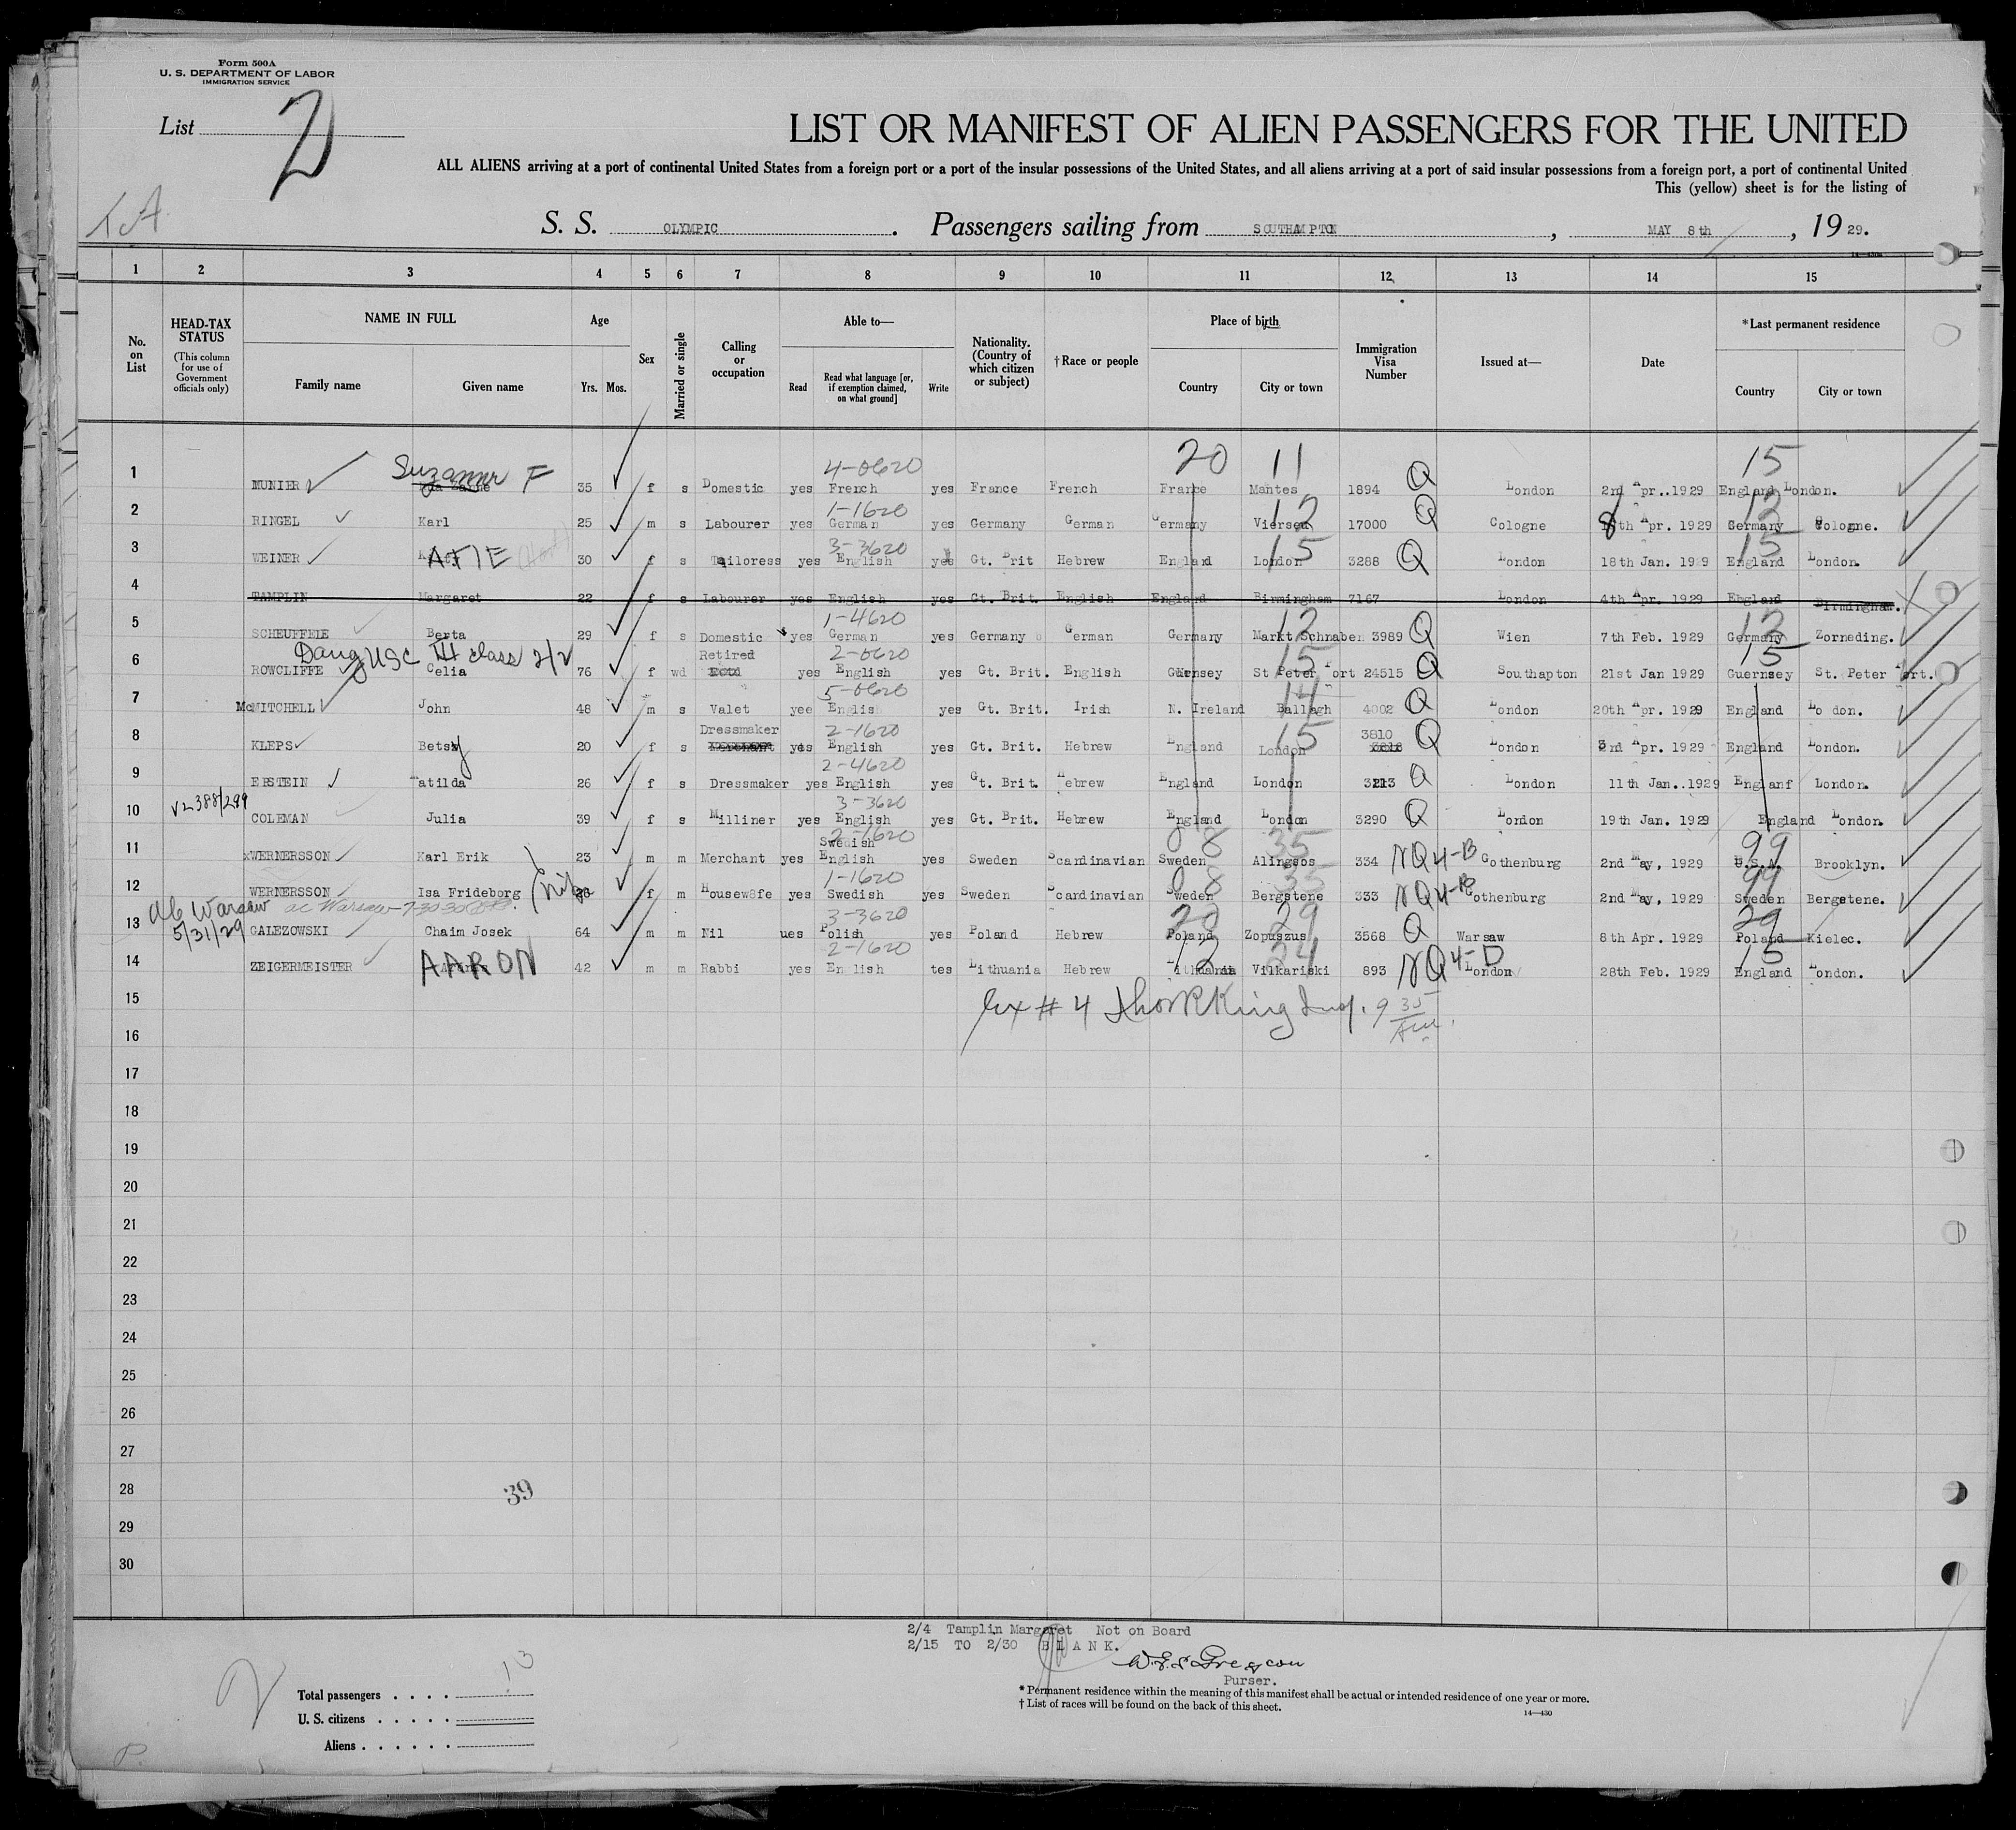 Form 500A
U. S. DEPARTMENT OF LABOR
IMMIGRATION SERVICE
List 2
LIST OR MANIFEST OF ALIEN PASSENGERS FOR THE UNITED
ALL ALIENS arriving at a port of continental United States from a foreign port or a port of the insular possessions of the United States, and all aliens arriving at a port of said insular possessions from a foreign port, a port of continental United
This (yellow) sheet is for the listing of
S. S. OLYMPIC . Passengers sailing from SOUTHAMPTON , MAY 8th , 19 29.
1 2 3 4 5 6 7 8 9 10 11 12 13 14 15
No. on List
HEAD-TAX STATUS
(This column for use of Government officials only)
NAME IN FULL
Family name Given name
Age
Yrs. Mos.
Sex
Married or single
Calling or occupation
Able to—
Read Read what language [or, if exemption claimed, on what ground] Write
Nationality. (Country of which citizen or subject)
†Race or people
Place of birth
Country City or town
Immigration Visa Number
Issued at—
Date
*Last permanent residence
Country City or town
Suzanne F 4-0620 20 11 15
1 MUNIER 35 f s Domestic yes French yes France French France Mantes 1894 Q London 2nd Apr..1929 England London.
1-1620 12 12
2 RINGEL Karl 25 m s Labourer yes German yes Germany German Germany Viersen 17000 Q Cologne 8th Apr. 1929 Germany Cologne.
3-3620 15 15
3 WEINER 30 f s Tailoress yes English yes Gt. Brit Hebrew England London 3288 Q London 18th Jan. 1929 England London.
4 TAMPLIN Margaret 22 f s Labourer yes English yes Gt. Brit. English England Birmingham 7167 London 4th Apr. 1929 England Birmingham.
1-4620 12 12
5 SCHEUFFEIE Berta 29 f s Domestic yes German yes Germany German Germany Markt Schnaben 3989 Q Wien 7th Feb. 1929 Germany Zorneding.
Daug USC III class 2/2 Retired 2-0620 15 15
6 ROWCLIFFE Celia 76 f wd yes English yes Gt. Brit. English Guernsey St Peter Port 24515 Q Southapton 21st Jan 1929 Guernsey St. Peter Port.
5-0620 14
7 McMITCHELL John 48 m s Valet yee English yes Gt. Brit. Irish N. Ireland Ballagh 4002 Q London 20th Apr. 1929 England Lo don.
Dressmaker 2-1620 15 3810
8 KLEPS Betsy 20 f s yes English yes Gt. Brit. Hebrew England London Q London 3rd Apr. 1929 England London.
2-4620
9 EPSTEIN Matilda 26 f s Dressmaker yes English yes Gt. Brit. Hebrew England London Q London 11th Jan..1929 Englanf London.
V2388/299 3-3620
10 COLEMAN Julia 39 f s Milliner yes English yes Gt. Brit. Hebrew England London 3290 Q London 19th Jan. 1929 England London.
2-1620 Swedish 08 35 99
11 xWERNERSSON Karl Erik 23 m m Merchant yes English yes Sweden Scandinavian Sweden Alingsos 334 NQ 4-B Gothenburg 2nd May, 1929 U.S.A. Brooklyn.
1-1620 08 35 99
12 WERNERSSON Isa Frideborg f m Housew8fe yes Swedish yes Sweden Scandinavian Sweden Bergstene 333 NQ 4-B Gothenburg 2nd May, 1929 Sweden Bergstene.
ab Warsaw 5/31/29 3-3620 29 29
13 GALEZOWSKI Chaim Josek 64 m m Nil ues Polish yes Poland Hebrew Poland Zopuszus 3568 Q Warsaw 8th Apr. 1929 Poland Kielec.
2-1620 12 24 15
14 ZEIGERMEISTER AARON 42 m m Rabbi yes En lish tes Lithuania Hebrew Lithuania Vilkariski 893 NQ 4-D London 28th Feb. 1929 England London.
15
16
17
18
19
20
21
22
23
24
25
26
27
28
39
29
30
2/4 Tamplin Margaret Not on Board
2/15 TO 2/30 B L A N K.
Purser.
Total passengers . . . . 13
U. S. citizens . . . . .
Aliens . . . . . .
* Permanent residence within the meaning of this manifest shall be actual or intended residence of one year or more.
† List of races will be found on the back of this sheet.
14—430